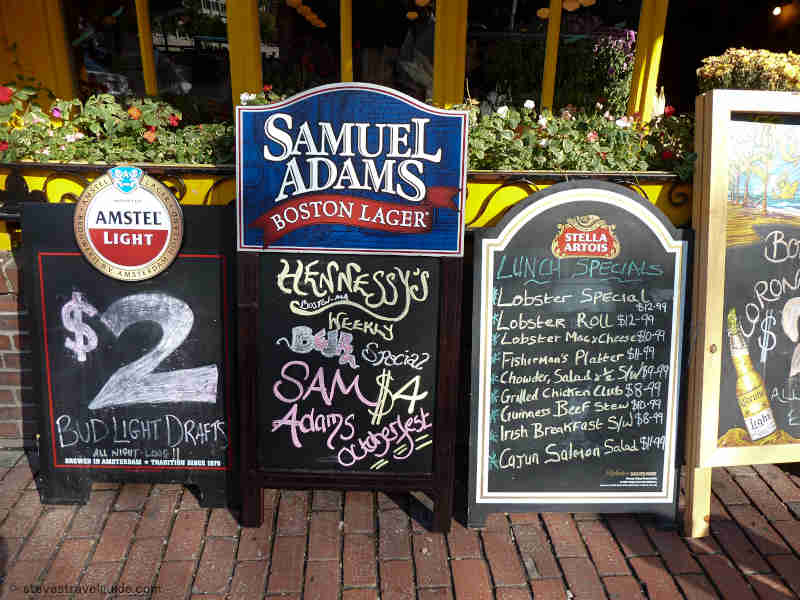 AMSTEL
LIGHT
$2
BUD LIGHT DRAFTS
ALL NIGHT LONG!!
BREWED IN AMSTERDAM ★ TRADITION SINCE 1870
SAMUEL
ADAMS
BOSTON LAGER®
HENNESSY'S
BOSTON-MA
WEEKLY
BEER Special
SAM $4
Adams
Octoberfest
STELLA
ARTOIS
LUNCH SPECIALS
Lobster Special $12.99
Lobster Roll $12.99
Lobster Mac & Cheese $10.99
Fisherman's Platter $11.99
Chowder, Salad & ½ S/W $9.99
Grilled Chicken Club $8.99
Guinness Beef Stew $10.99
Irish Breakfast S/W $8.99
Cajun Salmon Salad $11.99
CORONA
$
Light
© stevestravelguide.com